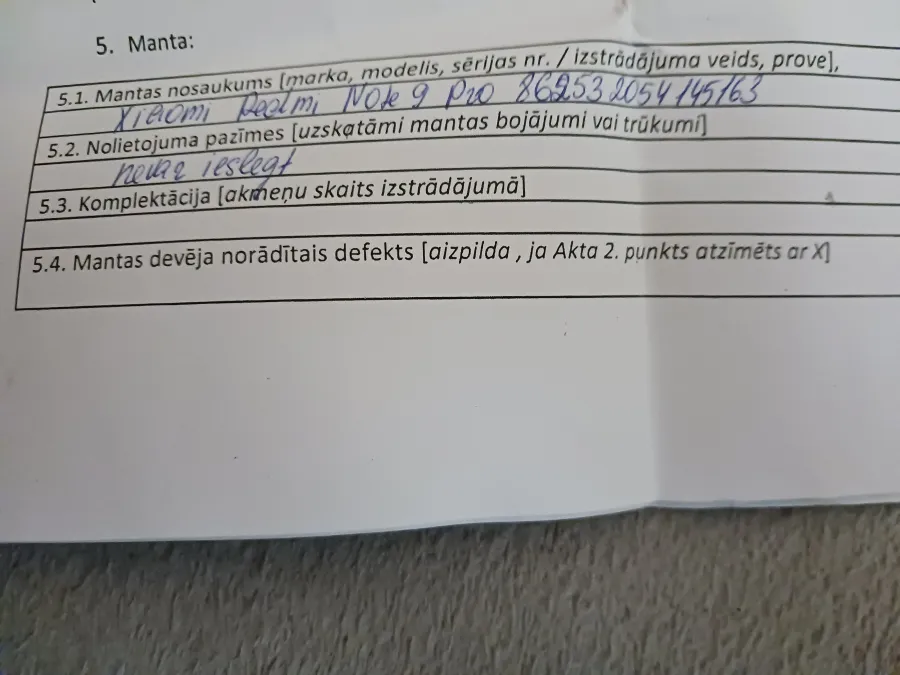 5. Manta:
5.1. Mantas nosaukums [marka, modelis, sērijas nr. / izstrādājuma veids, prove],
Xiaomi Redmi Note 9 Pro 862532054145163
5.2. Nolietojuma pazīmes [uzskatāmi mantas bojājumi vai trūkumi]
nevar ieslegt
5.3. Komplektācija [akmeņu skaits izstrādājumā]
5.4. Mantas devēja norādītais defekts [aizpilda , ja Akta 2. punkts atzīmēts ar X]